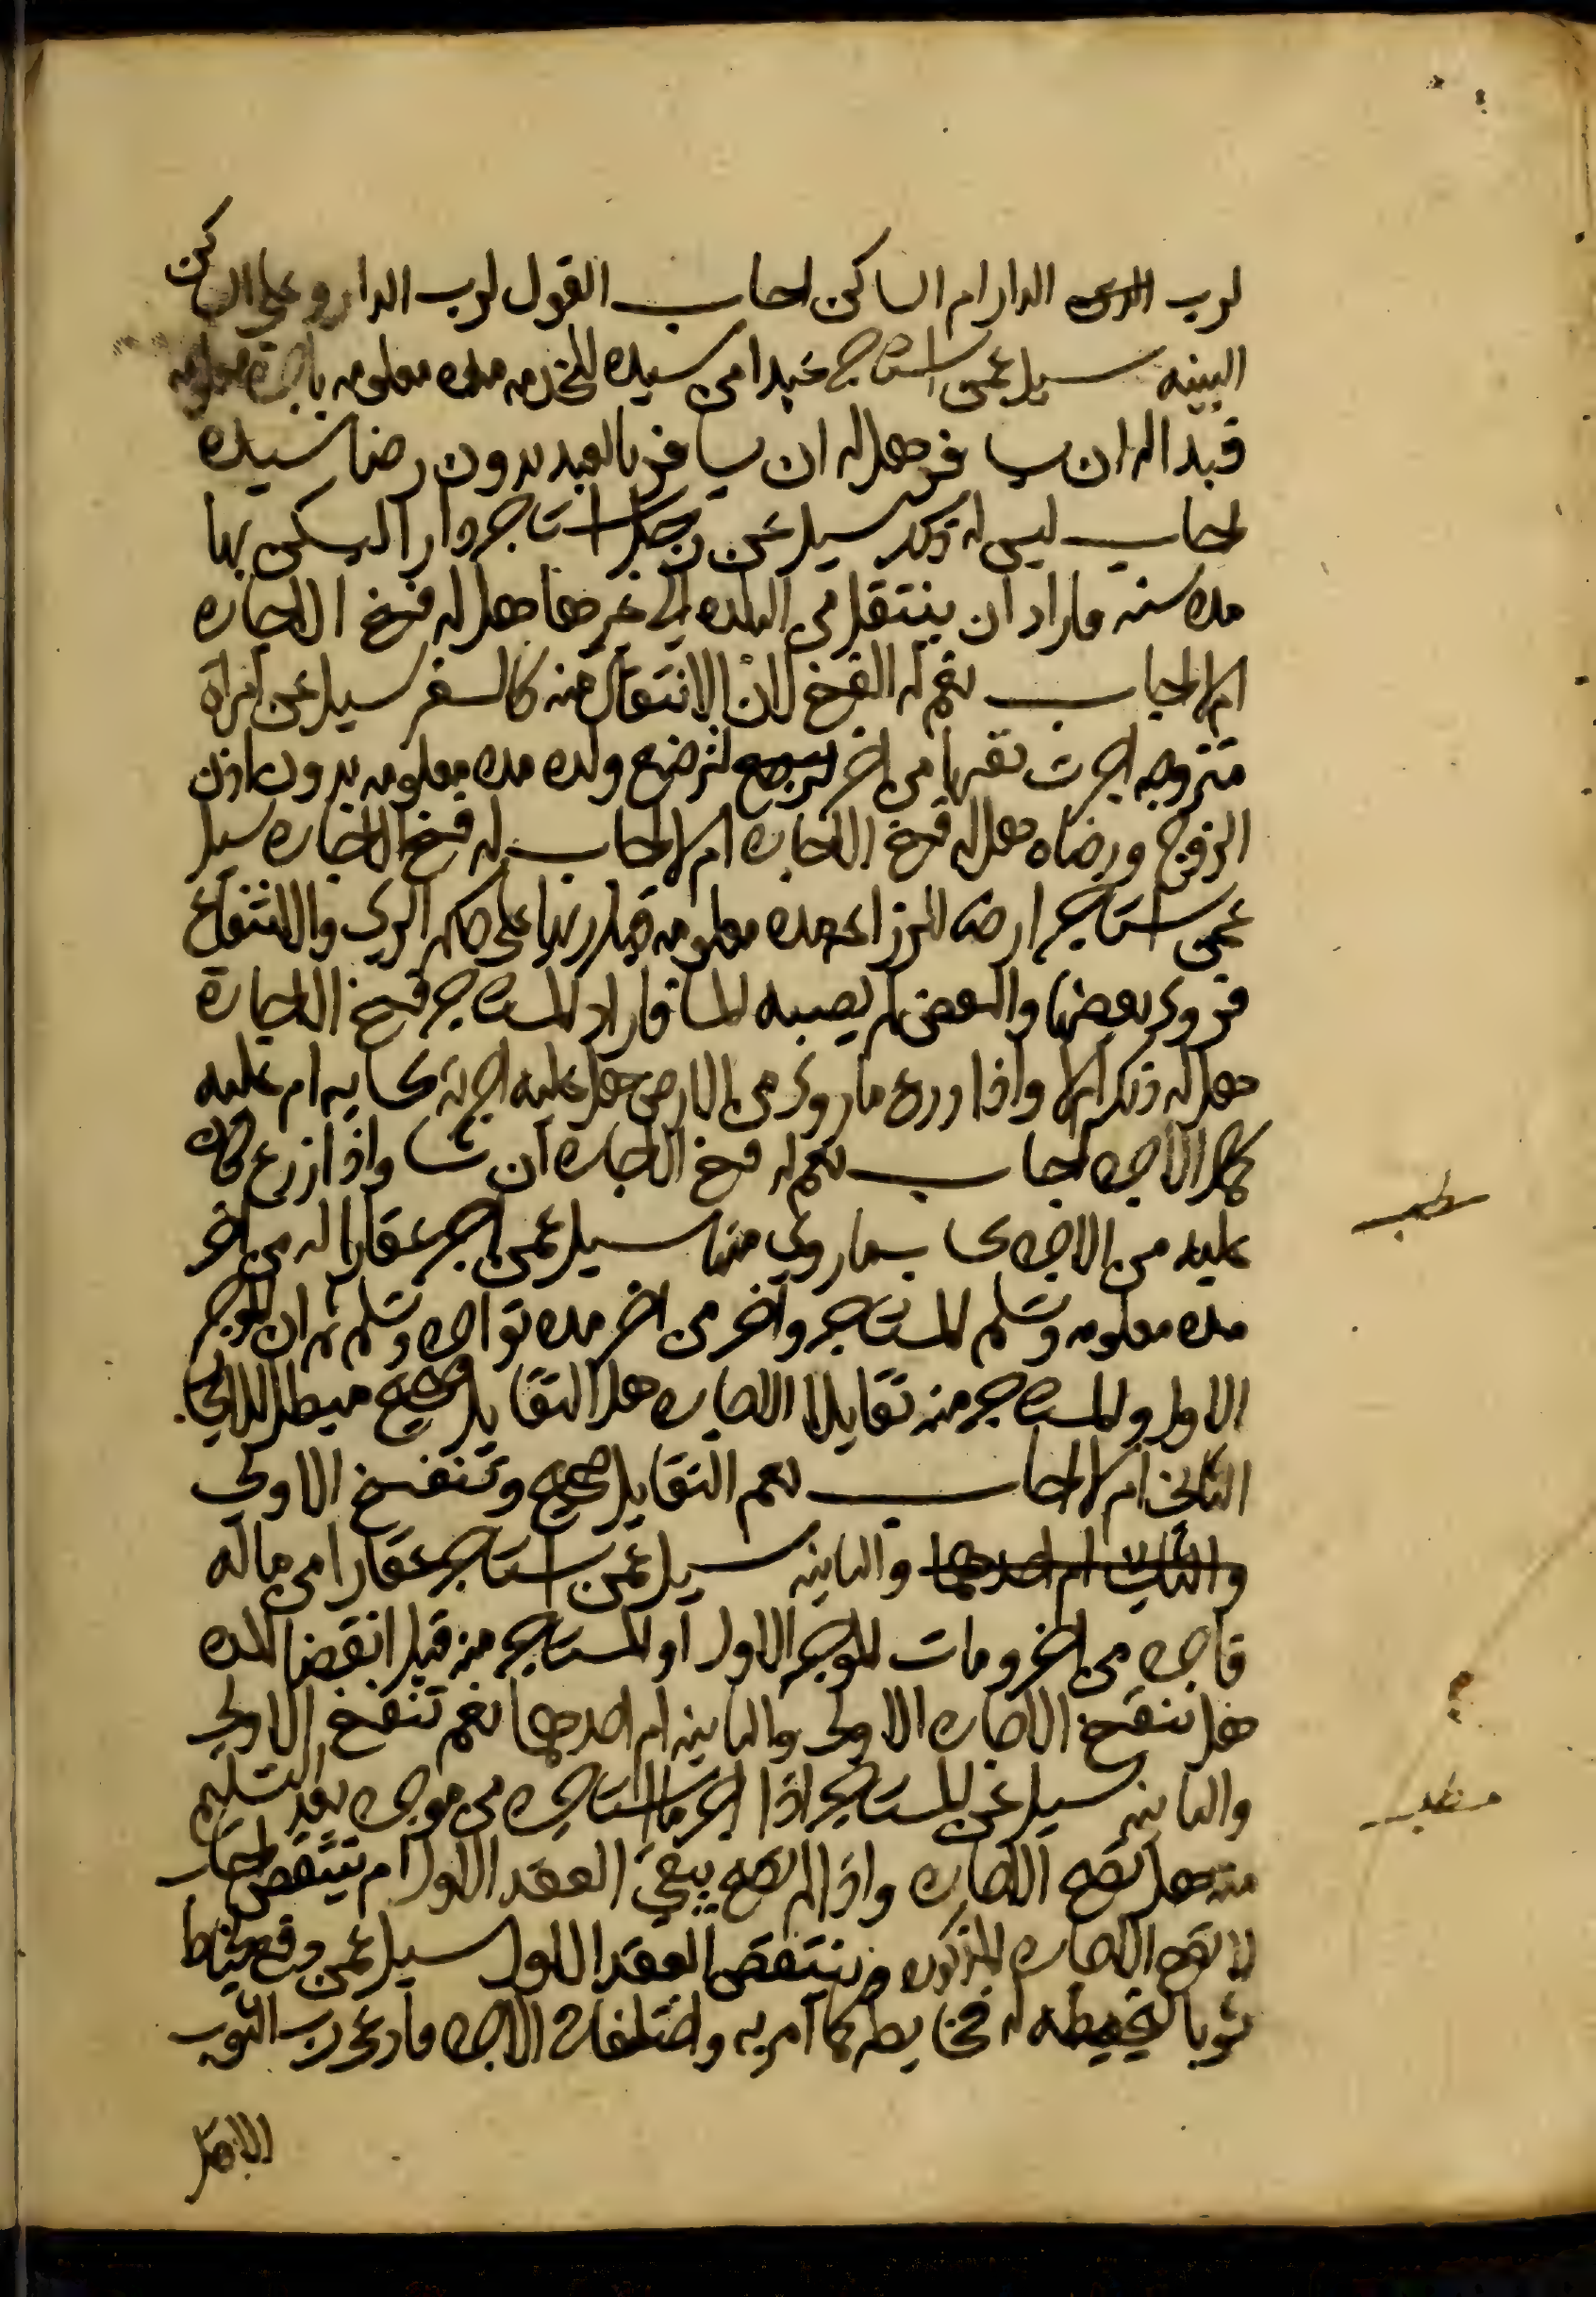 لرب الدار ام الساكن اجاب القول لرب الدار وعلى الساكن
البينه سيل عمن استاجر عبدا من سيده للخدمه مده معلومه باجرة معلومه
فبدا له ان يسافر هل له ان يسافر بالعبد بدون رضا سيده
اجاب ليس له ذلك سيل عن رجل استاجر دارا ليسكن بها
مده سنه فاراد ان ينتقل من البلده الي غيرها هل له فسخ الاجاره
ام لا اجاب نعم له الفسخ لان الانتقال منه كالسفر سيل عن امراة
متزوجه اجرت نفسها من اخر لترضع ولده مده معلومه بدون اذن
الزوج ورضاه هل له فسخ الاجاره ام لا اجاب له فسخ الاجاره سيل
عمن استاجر ارضا للزراعه مده معلومه قبل ريها علي حكم الري والانتفاع
فروي بعضها والبعض لم يصبه الما فاراد المستاجر فسخ الاجارة
هل له ذلك ام لا واذا زرع ما روي من الارض هل عليه اجرته بحسابه ام عليه
كل الاجره اجاب نعم له فسخ الاجاره ان شا واذا زرع كان
عليه من الاجره بحساب ما روي منها سيل عمن اجر عقارا له من اخر
مده معلومه وتسلم المستاجر واجر من اخر مده تواجره وتسلم ثم ان الموجر
الاول والمستاجر منه تقايلا الاجاره هل التقايل صحيح فيبطل الايجار
الثاني ام لا اجاب نعم التقايل صحيح وتنفسخ الاولي
والثانيه سيل عمن استاجر عقارا من مالكه
فاجره من اخر ومات الموجر الاول او المستاجر منه قبل انقضا المده
هل تنفسخ الاجاره الاولي والثانيه ام احدهما نعم تنفسخ الاولي
والثانيه سيل عن المستاجر اذا اجر ما استاجره من موجره بعد التسليم
منه هل تصح الاجاره واذا لم تصح يبقي العقد الاول ام ينتقض اجاب
لا تصح الاجاره المذكوره وينتقض العقد الاول سيل عمن دفع لخياط
ثوبا ليخيطه له فخاطه كما امر به واختلفا في الاجره فادعي رب الثوب
الاجر
مطلب
مطلب